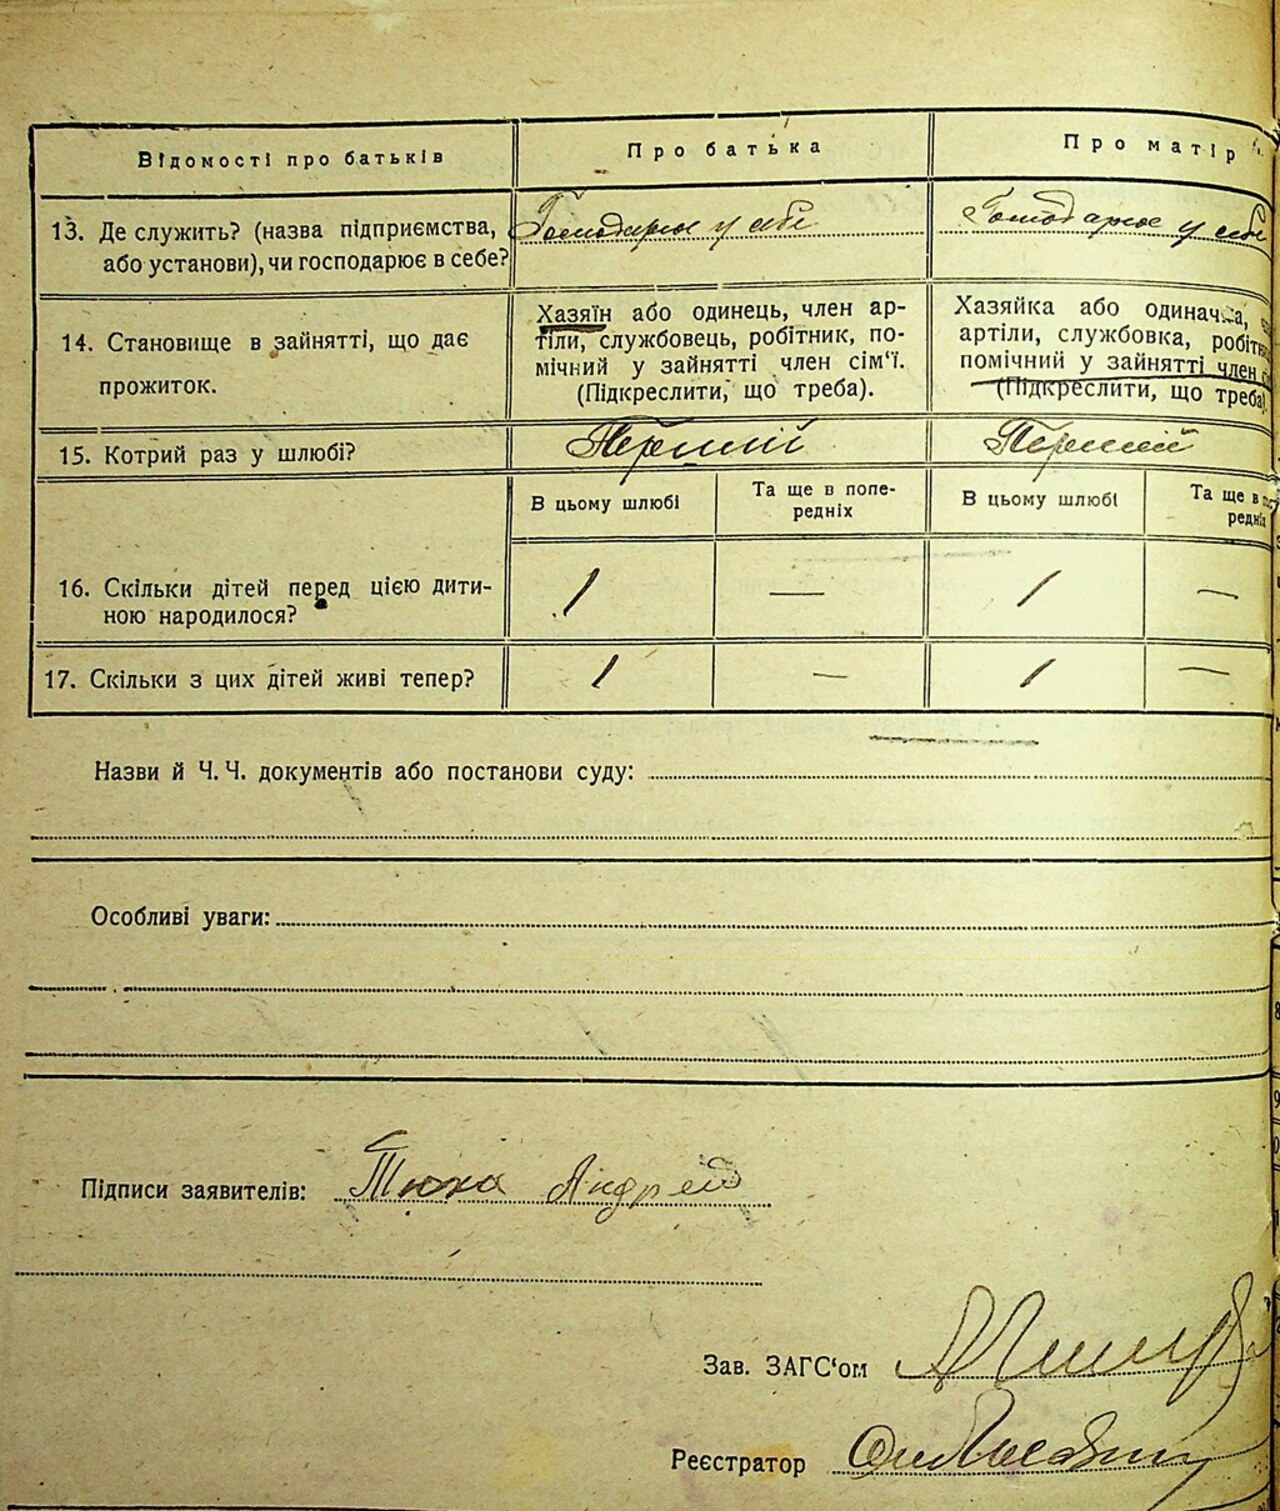 Відомості про батьків
Про батька
Про матір
13. Де служить? (назва підприємства,
або установи), чи господарює в себе?
Господарює у себе
Господарює у себе
14. Становище в зайнятті, що дає
прожиток.
Хазяїн або одинець, член ар-
тіли, службовець, робітник, по-
мічний у зайнятті член сім‘ї.
(Підкреслити, що треба).
Хазяйка або одиначка,
артіли, службовка,
помічний у зайнятті член
(Підкреслити, що треба).
15. Котрий раз у шлюбі?
Перший
Перший
В цьому шлюбі
Та ще в попе-
редніх
В цьому шлюбі
Та ще в
редніх
16. Скільки дітей перед цією дити-
ною народилося?
1 — 1 —
17. Скільки з цих дітей живі тепер?
1 — 1 —
Назви й Ч. Ч. документів або постанови суду:
Особливі уваги:
Підписи заявителів: Тюха Андрей
Зав. ЗАГС‘ом
Реєстратор